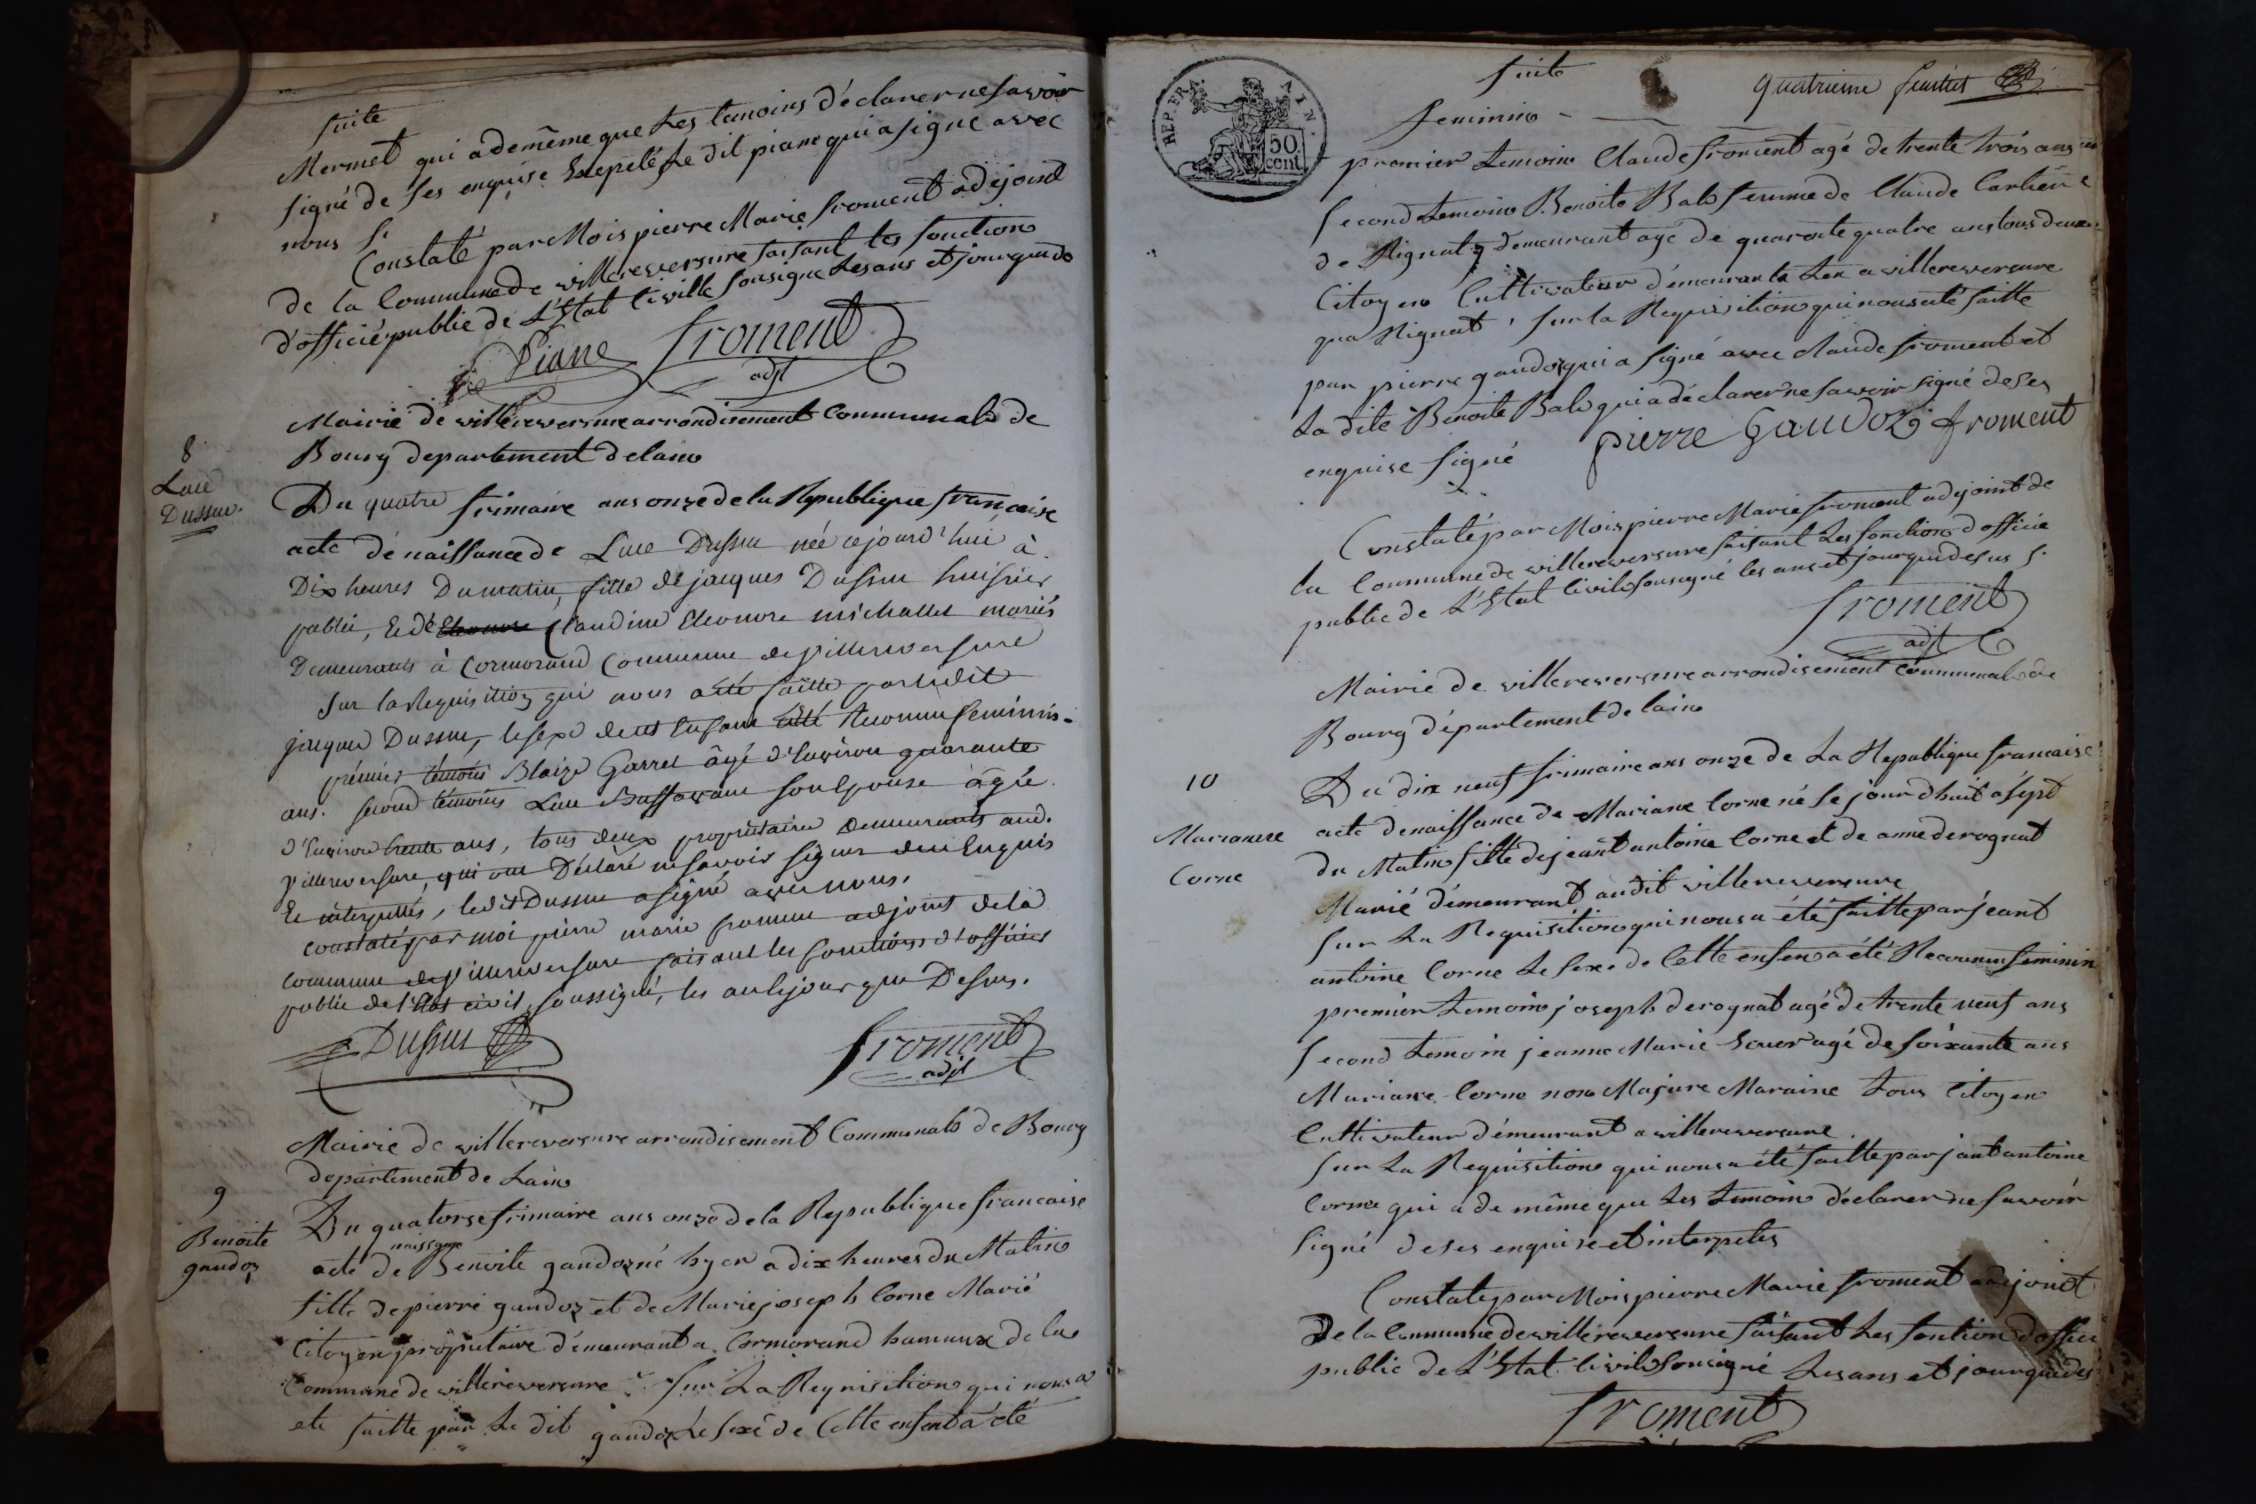 suite
Mermet qui a de même que Les temoins déclarer ne savoir
signé de ses enquise Le dit piane qui a signé avec
nous S.
Constaté par Mois pierre Marie froment adejoint
de la Commune de villereversure faisant les fonction
d'officié public de L'Etat Civille sousigne Les ans et jour que de
Piane froment
adjt
Mairie de villereversure arrondisement Communale de
Bourg departement delain
8
Luce
Dussuc.
Du quatre frimaire ans onze de la Republique francaise
acte dénaissance de Luce Dussuc née cejourd'hui à
Dix heures Du matin, fille de jacques Dussuc huissier
public, Et de Eleonore Claudine Eleonore michallet mariés
Demeurants à Cormorand Commune de Villereversure
sur la Requisition qui nous a été faitte par ledit
jacques Dussuc, le sexe de cet Enfant Reconnu feminin.
prémier témoins Blaize Garret âgé d'Environ quarante
ans. second témoins Luce son Epouse âgée
d'Environ trente ans, tous deux propriétaires Demeurants aud.
Villereversure, qui ont Déclaré ne savoir signer de ce Enquis
Et interpellés, ledit Dussuc a signé avec nous.
Constaté par moi pierre marie froment adjoint de la
commune de Villereversure faisant les fonctions d'officier
public de l'Etat civil, soussigné, les an et jour que Dessus.
Dussuc froment
adjt
Mairie de villereversure arrondisement Communale de Bourg
departement de Lain
9
Benoite
gaudoz
Du quatorse frimaire ans onze de la Republique francaise
naissance
acte de Benoite gaudoz né hyer a dix heures du Matin
fille de pierre gaudoz et de Marie joseph Corne Marié
Citoyen propietaire démeurant a Cormorand hamaux de la
Commune de villereversure sur La Requisition qui nous a
ete faitte par Le dit gaudoz Le sexe de Cette enfent a été
REP. FRA. AIN.
50
cent.
suite
quatrieme feuillet
feminin
promier temoin Claude froment agé de trente trois ans
second temoin Benoite Balo femme de Claude
de Rignat y demeurant agé de quarente quatre ans tous deux
Citoyen Cultivateur démeurant Lun a villereversure
Rignat sur la Requisition qui nous a été faitte
par pierre gaudoz qui a signé avec claude froment et
La dite Benoite Balo qui a déclarer ne savoir signé de ses
enquise signé pierre Gaudoz froment
Constaté par Mois pierre Marie froment adejoint de
la Commune de villereversure faisant Les fonction d officié
public de L'Etat Civile sousigné les ans et jour que desus S.
froment
adjt
Mairie de villereversure arrondisement Communale de
Bourg département de lain
10
Marianne
Corne
Du dix neuf frimaire ans onze de La Republique francaise
acte denaissance de Mariane Corne né se jourdhuit a sept
du Matin fille de jeant antoine Corne et de anne derognat
Marié démeurant audit villereversure
sur La Requisition qui nous a été faitte par jeant
antoine Corne Le sexe de Cette enfen a été Reconnu feminin
promier temoin joseph derognat agé de trente neuf ans
second temoin jeanne Marie agé de soixante ans
Mariane Corne non Majure Maraine tous Citoyen
Cultivateur démeurant a villereversure.
sur La Requisition qui nous a été faitte par jant antoine
Corne qui a de même que Les temoin déclarer ne savoir
signé de ses enquise et interpeler
Constaté par Mois pierre Marie froment adejoint
De la Commune de villereversure faisant Les fontion d officié
public de L'Etat Civile sousigné Les ans et jour que des
froment